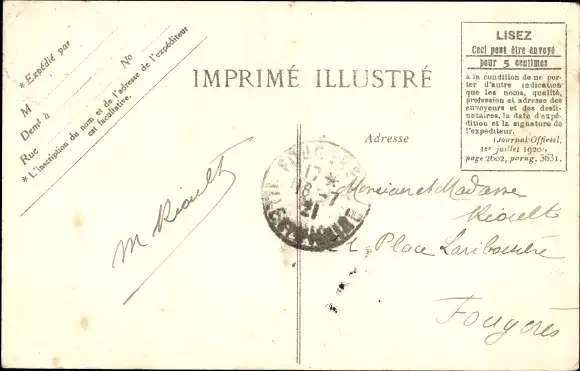 * Expédié par
M
Nº
Demt à
Rue
* L'inscription du nom et de l'adresse de l'expéditeur
est facultative.
IMPRIMÉ ILLUSTRÉ
LISEZ
Ceci peut être envoyé
pour 5 centimes
à la condition de ne por-
ter d'autre indication
que les noms, qualité,
profession et adresse des
envoyeurs et des desti-
nataires, la date d'expé-
dition et la signature de
l'expéditeur.
(Journal Officiel,
1er juillet 1920,
page 2602, parag. 3631.
Adresse
FOUGÈRES
17 *
18 -7
21
ILLE-ET-VILAINE
M Rioult
Monsieur et Madame
Rioult
Place Lariboisière
Fougères